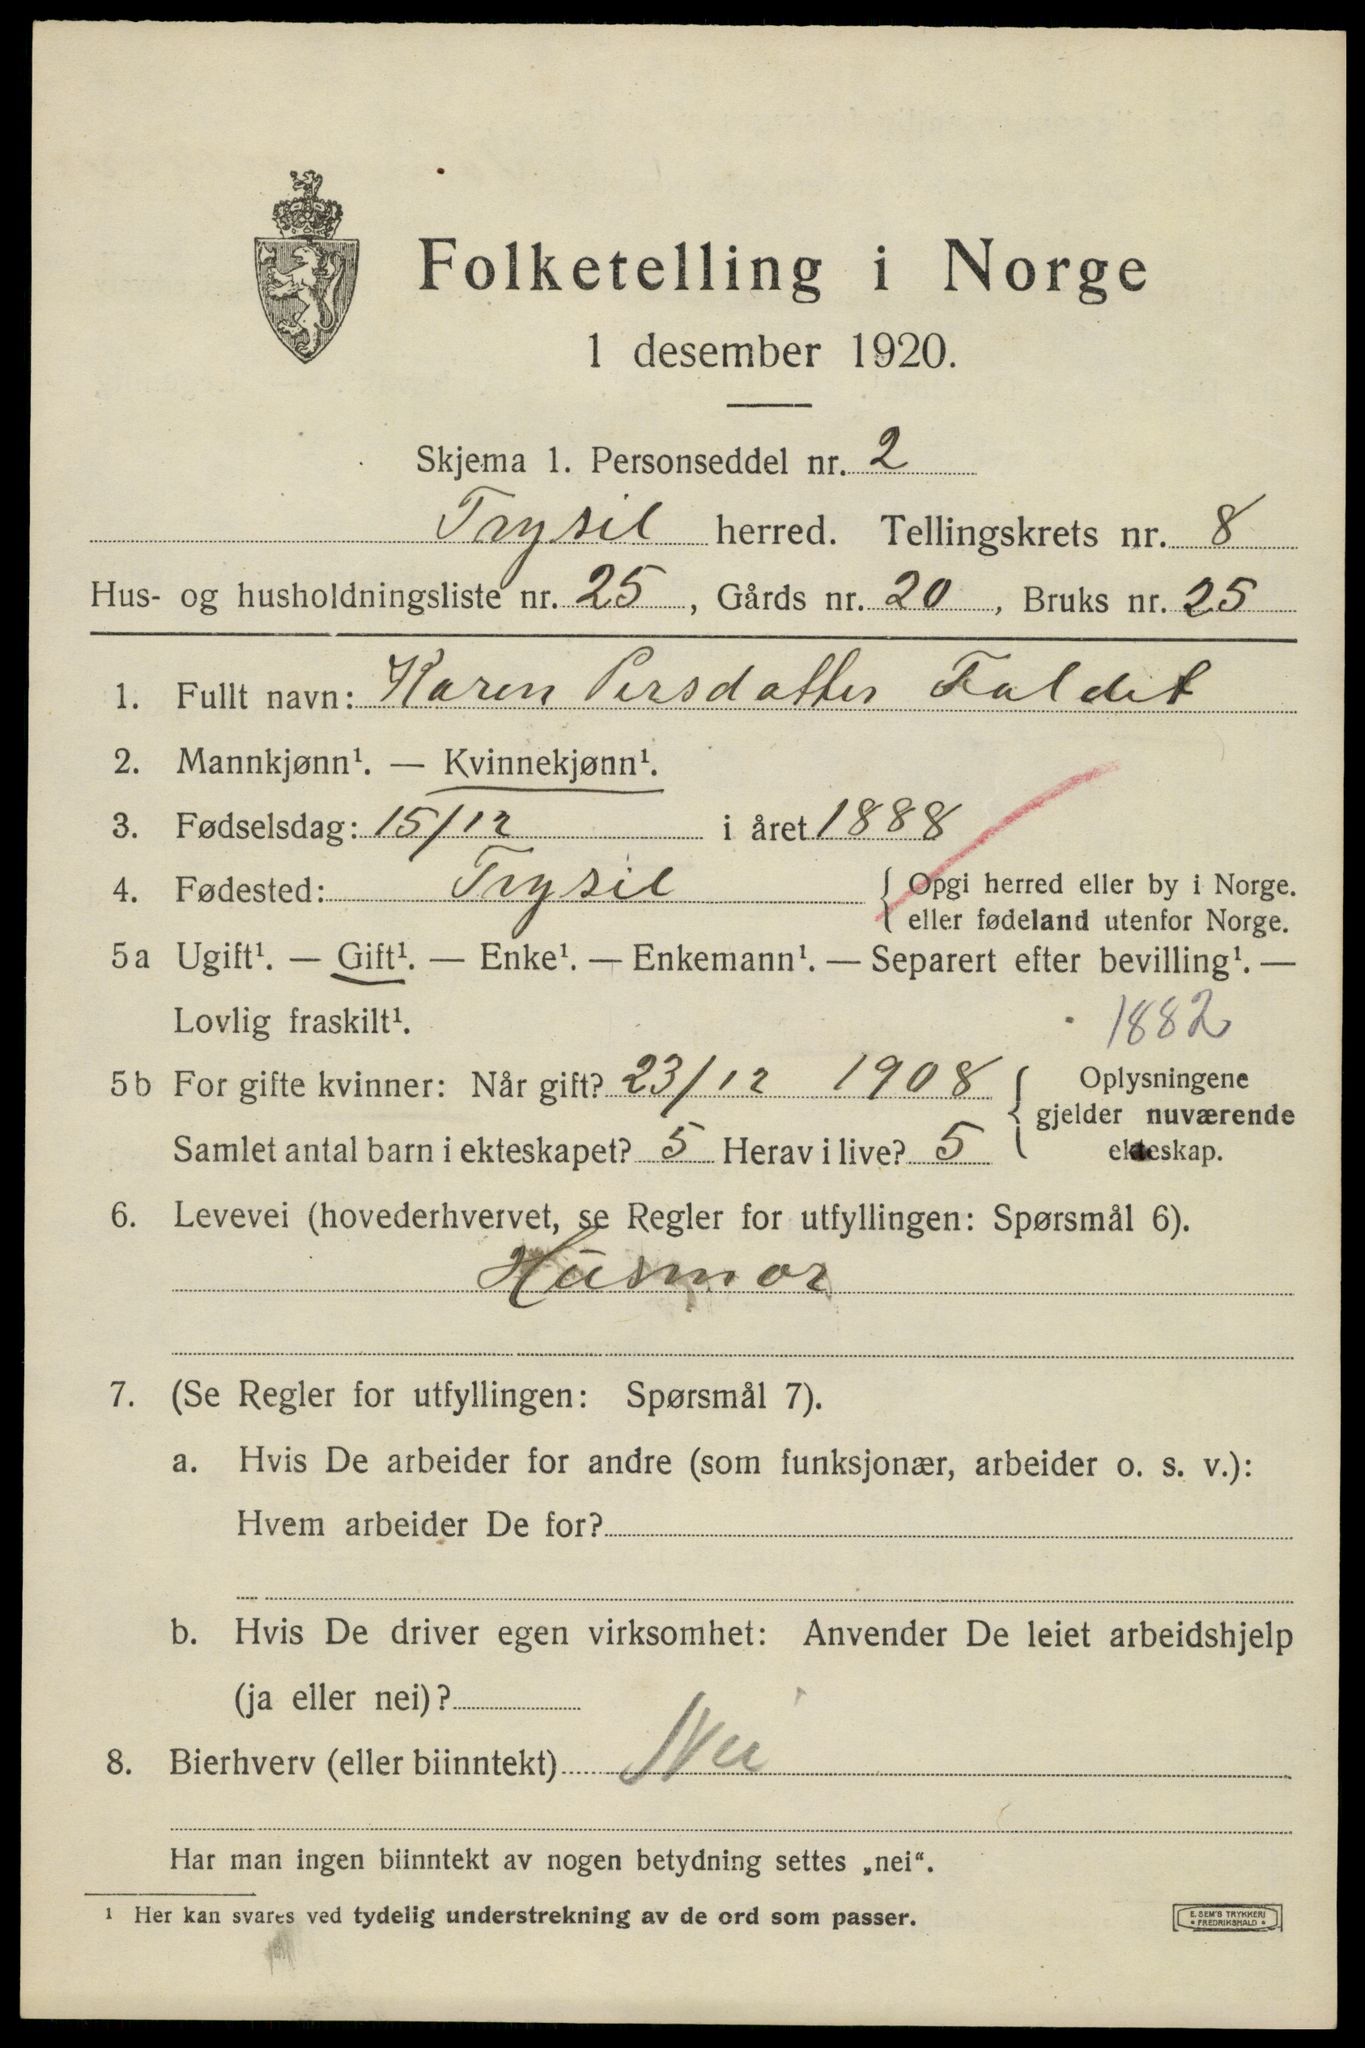 Folketelling i Norge
1 desember 1920.
Skjema 1. Personseddel nr. 2
Trysil herred. Tellingskrets nr. 8
Hus- og husholdningsliste nr. 25, Gårds nr. 20, Bruks nr. 25
1. Fullt navn: Karen Persdatter Faldet
2. Mannkjønn¹. — Kvinnekjønn¹.
3. Fødselsdag: 15/12 i året 1888
4. Fødested: Trysil { Opgi herred eller by i Norge.
eller fødeland utenfor Norge.
5a Ugift¹. — Gift¹. — Enke¹. — Enkemann¹. — Separert efter bevilling¹. —
Lovlig fraskilt¹.
1882
5b For gifte kvinner: Når gift? 23/12 1908 { Oplysningene
gjelder nuværende
Samlet antal barn i ekteskapet? 5 Herav i live? 5 ekteskap.
6. Levevei (hovederhvervet, se Regler for utfyllingen: Spørsmål 6).
Husmor
7. (Se Regler for utfyllingen: Spørsmål 7).
a. Hvis De arbeider for andre (som funksjonær, arbeider o. s. v.):
Hvem arbeider De for?
b. Hvis De driver egen virksomhet: Anvender De leiet arbeidshjelp
(ja eller nei)?
8. Bierhverv (eller biinntekt) Nei
Har man ingen biinntekt av nogen betydning settes „nei“.
¹ Her kan svares ved tydelig understrekning av de ord som passer.
E. SEM'S TRYKKERI
• FREDRIKSHALD •